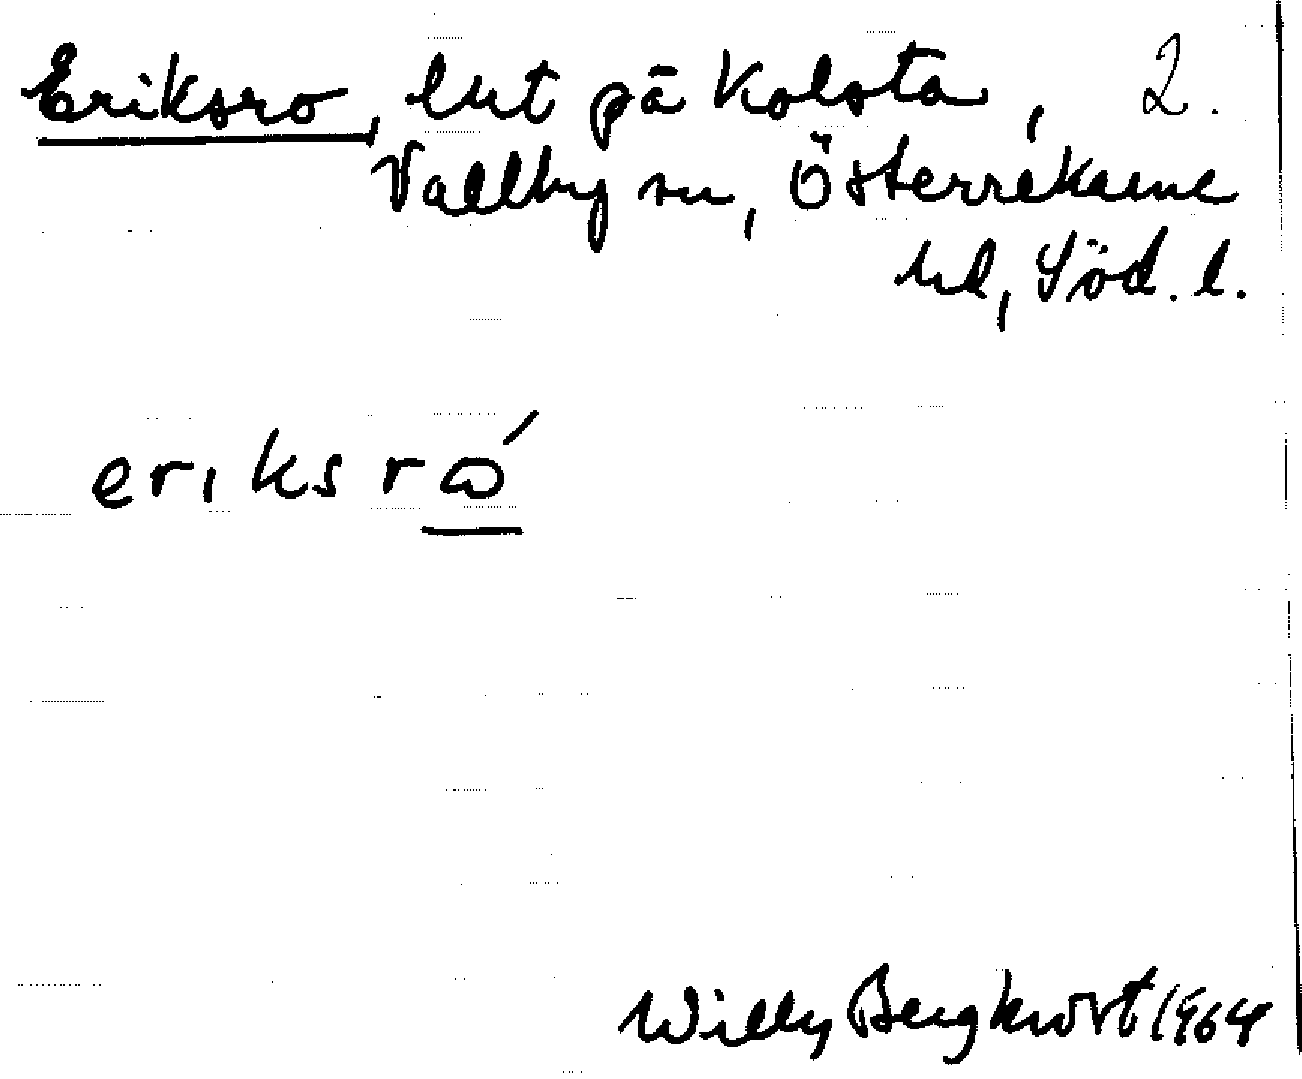 Eriksro, lht på Kolsta, 2.
Vallby sn, Österrekarne
hd, Söd. l.
eriksrω´
Willy Bergkvist 1964